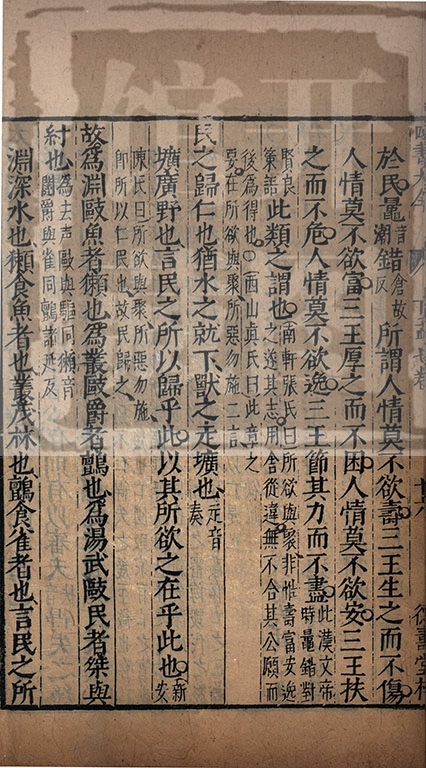 於民鼂音潮錯倉故反所謂人情莫不欲壽三王生之而不傷
人情莫不欲富三王厚之而不困人情莫不欲安三王扶
之而不危人情莫不欲逸三王節其力而不盡此漢文帝時鼂錯對
賢良策語此類之謂也南軒張氏曰所欲與聚非惟壽富安逸之遂其志用舍從違無不合其公願而
後為得也西山真氏曰此章之要在所欲與聚所惡勿施二言
民之歸仁也猶水之就下獸之走壙也走音奏
壙廣野也言民之所以歸乎此以其所欲之在乎此也新安
陳氏曰所欲與聚所惡勿施即所以仁民也故民歸之
故為淵敺魚者獺也為叢敺爵者鸇也為湯武敺民者桀與
紂也為去声敺與驅同獺音闥爵與雀同鸇諸延反
淵深水也獺食魚者也叢茂林也鸇食雀者也言民之所